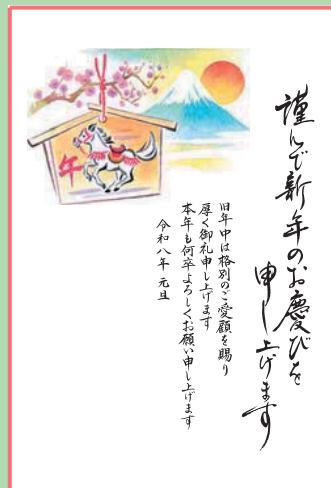 謹んで新年のお慶びを
申し上げます
旧年中は格別のご愛顧を賜り
厚く御礼申し上げます
本年も何卒よろしくお願い申し上げます
令和八年 元旦
午